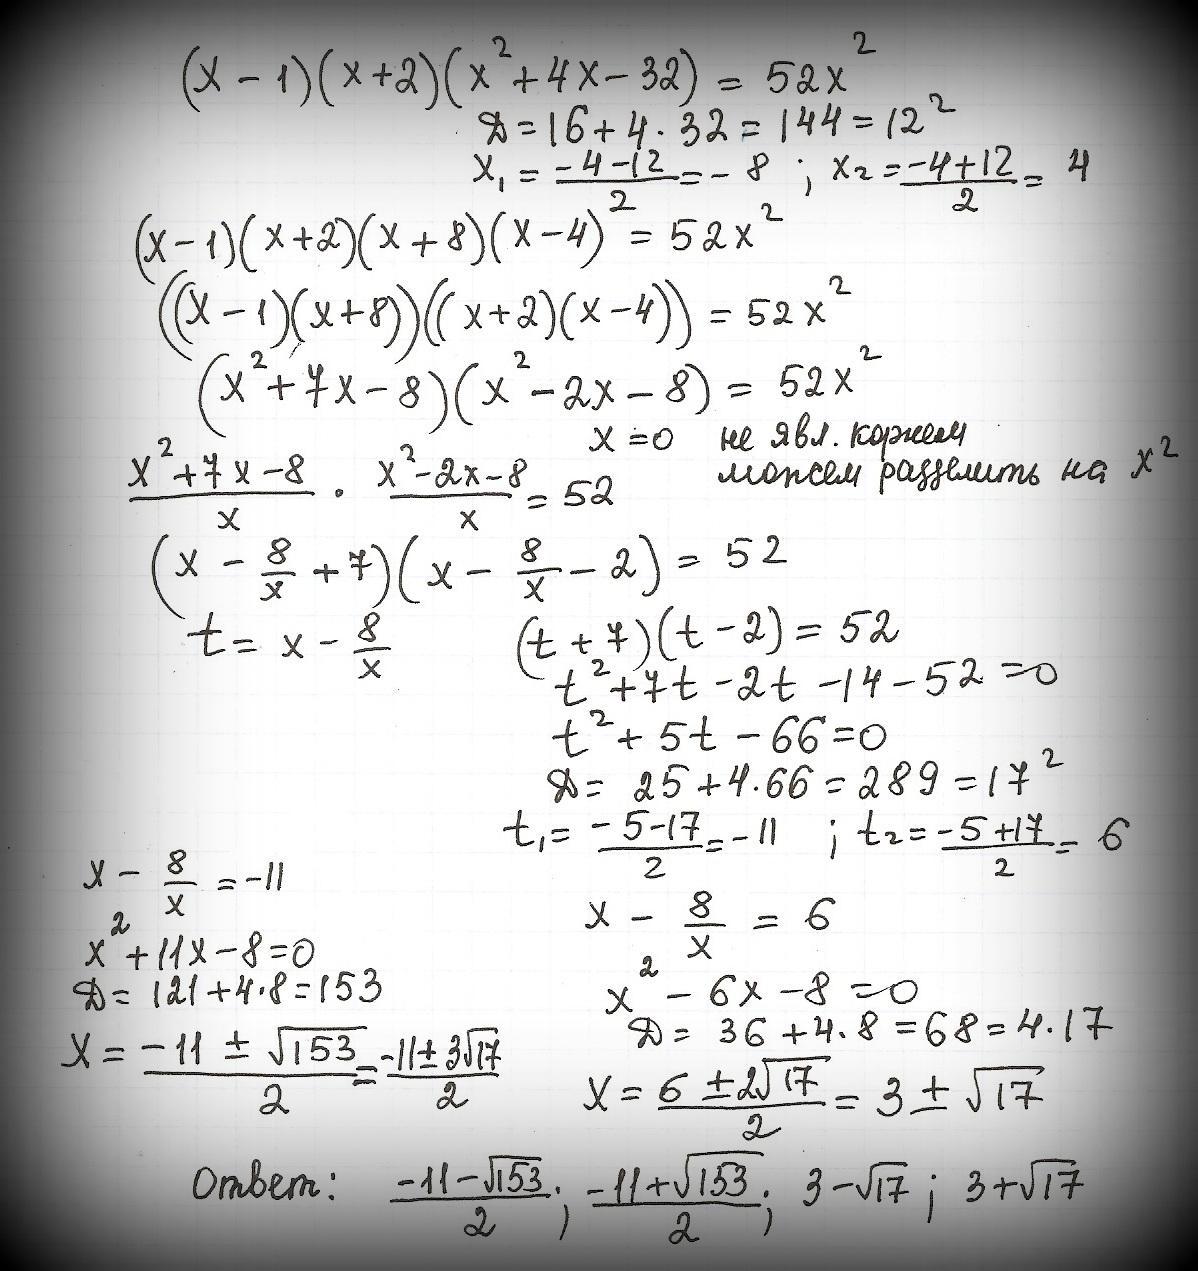 (x − 1)(x+2)(x²+4x−32) = 52x²
D=16+4·32=144=12²
x₁ = (−4−12)/2 = −8 ; x₂ = (−4+12)/2 = 4
(x−1)(x+2)(x+8)(x−4) = 52x²
((x−1)(x+8))((x+2)(x−4)) = 52x²
(x²+7x−8)(x²−2x−8) = 52x²
x=0 не явл. корнем
можем разделить на x²
(x²+7x−8)/x · (x²−2x−8)/x = 52
(x − 8/x + 7)(x − 8/x − 2) = 52
t = x − 8/x
(t+7)(t−2) = 52
t²+7t−2t−14−52=0
t²+5t−66=0
D= 25+4·66=289=17²
t₁= (−5−17)/2 = −11 ; t₂= (−5+17)/2 = 6
x − 8/x = −11
x²+11x−8=0
D= 121+4·8=153
x = (−11 ± √153)/2 = (−11 ± 3√17)/2
x − 8/x = 6
x² − 6x − 8 = 0
D= 36+4·8=68=4·17
x = (6 ± 2√17)/2 = 3 ± √17
Ответ: (−11−√153)/2 ; (−11+√153)/2 ; 3−√17 ; 3+√17